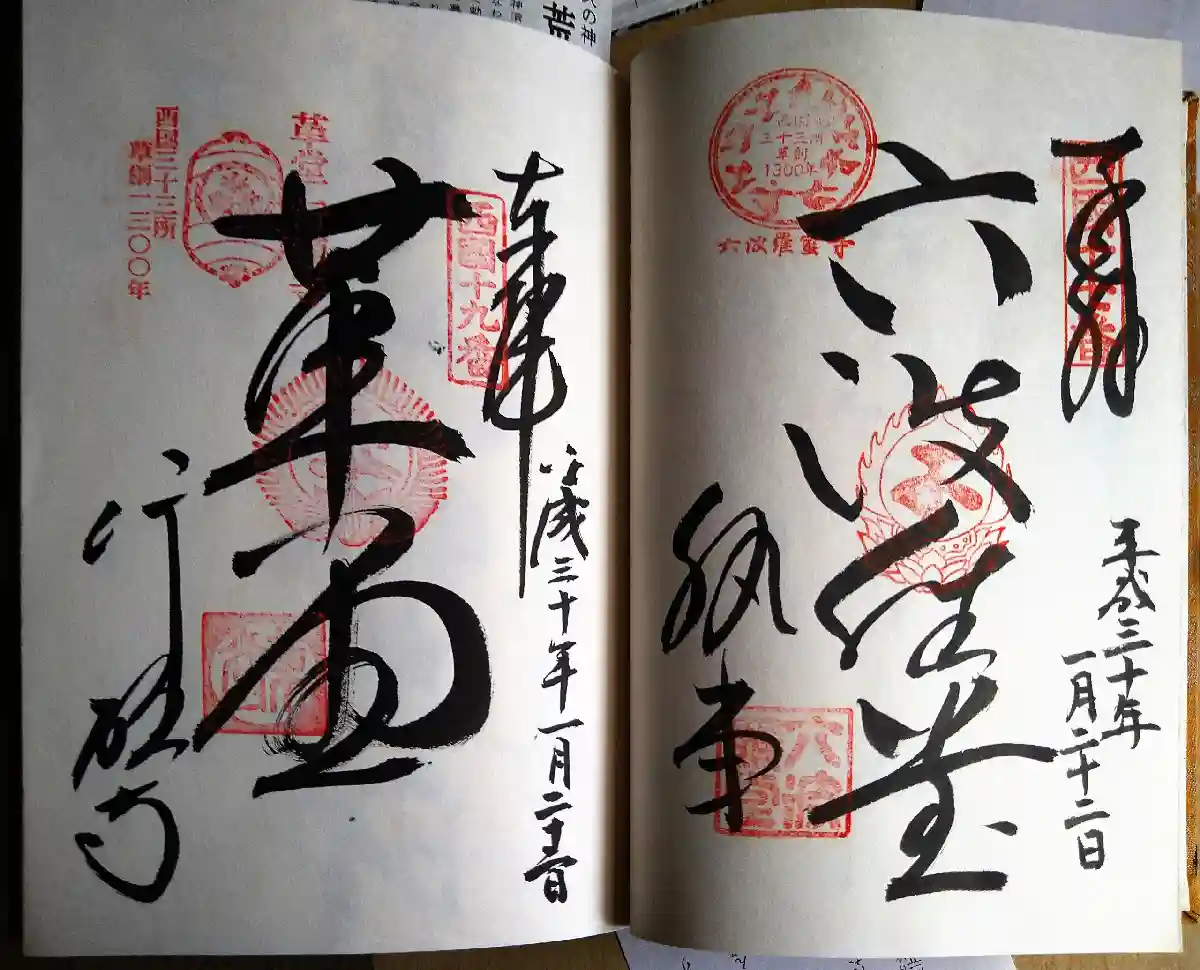 奉拝
平成三十年
一月二十二日
六波羅堂
三十三所
草創
1300年
六波羅蜜寺
執事
奉拝
西國十九番
平成三十年一月
革堂
行願寺
革堂
西国三十三所
草創一三〇〇年
の神
荒